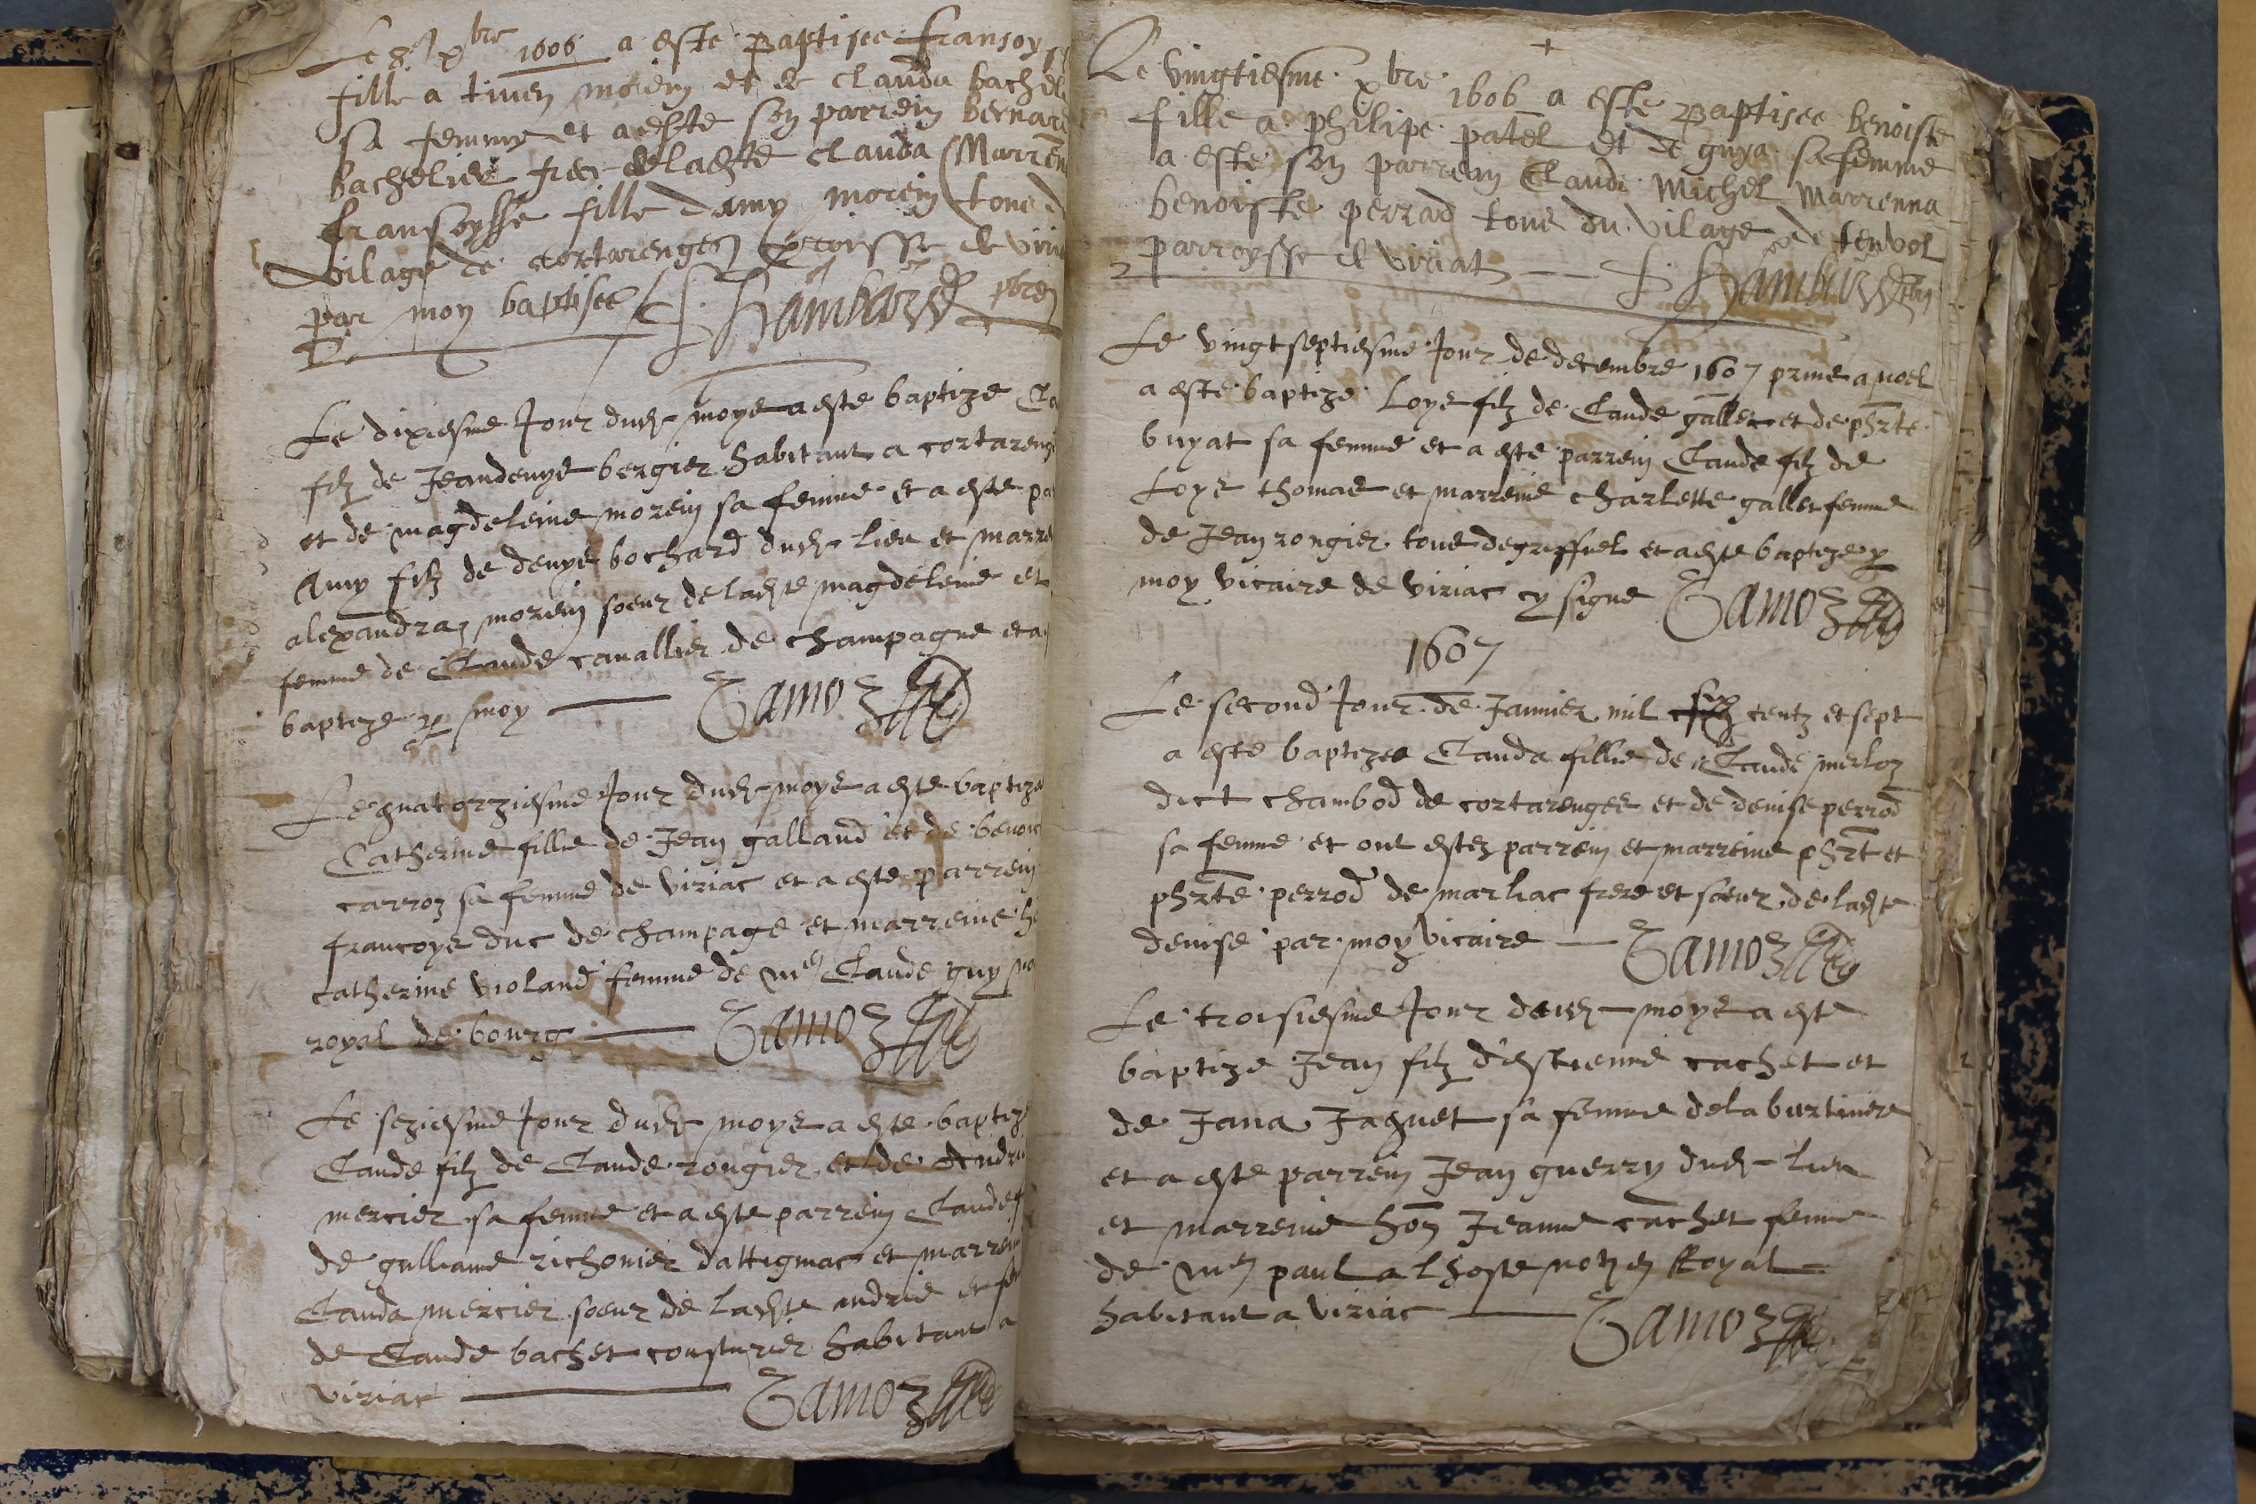 Le 8e xbre 1606 a este Baptisee fransoy
fille a tiven morein et de clauda bachel
sa femme et a este son parrein bernard
bachelier frere de ladte clauda Marren
fransoysse fille damy morein tous d
vilage de cortarenges parroisse de viria
par moy baptisee Hambard pbre
Le dixiesme Jour dud moys a este baptize Cl
filz de Jeandenys bergier habitant a cortareng
et de magdeleine morein sa femme et a este pa
Amy filz de denys bochard dud lieu et marre
alexandra morein soeur de ladte magdeleine et
femme de Claude cavallier de champagne et a
baptize p moy
Le quatorziesme Jour dud moys a este baptize
Catherine fillie de Jean galland et de benoi
carroz sa femme de viriac et a este parrein
francoys duc de champage et marreine h
catherine violand femme de me Claude guy no
royal de bourg
Le seziesme Jour dud moys a este baptiz
Claude filz de Claude rongier et de andri
mercier sa femme et a este parrein Claude f
de gulliame richonier dattignac et marrein
Clauda mercier soeur de ladte andrie et fe
de Claude bachet cousturier habitant a
viriac
Le vingtiesme xbre 1606 a este Baptisee benoiste
fille a philipe patel et de guya sa femme
a este son parrein Claude Michel Marrenna
benoiste perrad tous du vilage de tenvol
parroysse de viriat Hambard pbre
Le vingtseptiesme Jour de decembre 1607 prins a noel
a este baptize Loys filz de Claude gallet et de phrte
buyat sa femme et a este parrein Claude filz de
Loys thomas et marreine charlette gallet femme
de Jean rongier tous de griffuel et a este baptize p
moy vicaire de viriac cy signe
1607
Le second Jour de Janvier mil six centz et sept
a este baptizee Clauda fillie de Claude merloz
dict chambod de cortarenges et de denise perrod
sa femme et ont estez parrein et marreine phrt et
phrte perrod de marliac frere et soeur de ladte
denise par moy vicaire
Le troisiesme Jour dud moys a este
baptize Jean filz d'estienne cachet et
de Jana Jaquet sa femme de la bertiniere
et a este parrein Jean guerry dud lieu
et marreine hon Jeanne cachet femme
de me paul alhoste notre Royal
habitant a viriac